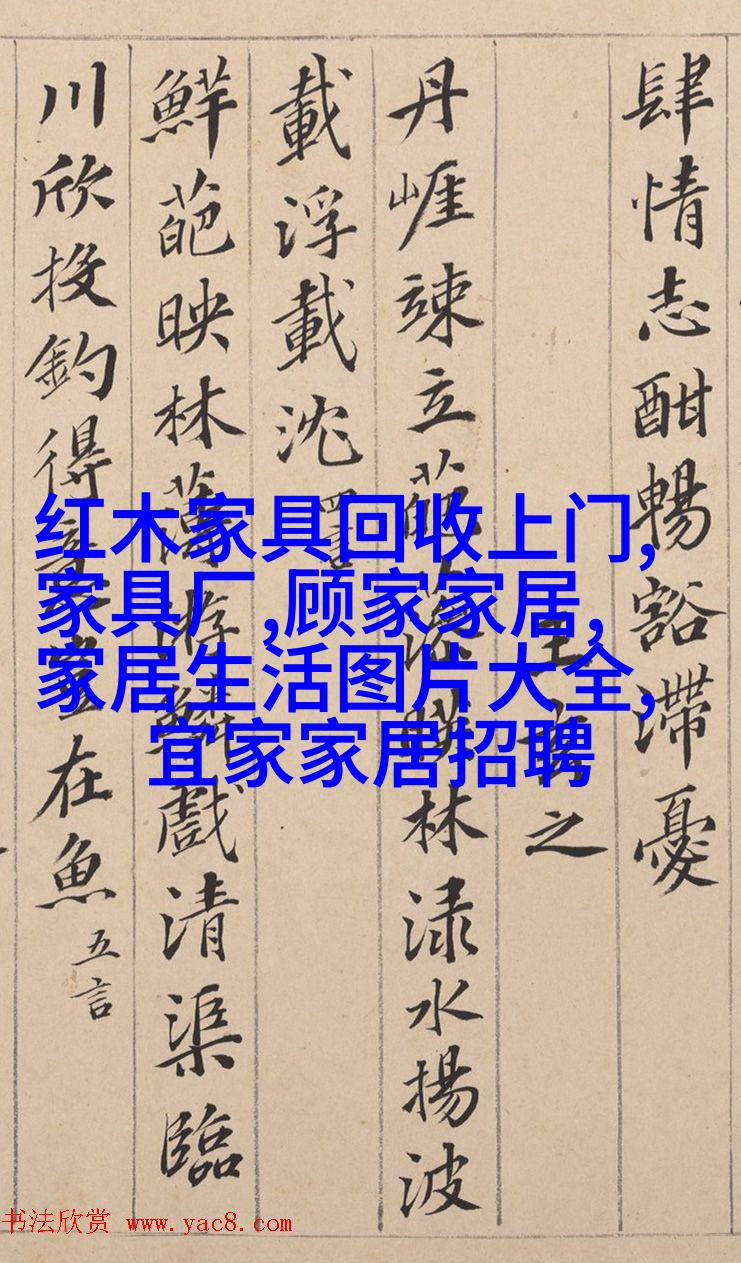 肆情志酣暢豁滯憂
王之
丹崕竦立葩藻暎林渌水揚波
載浮載沈 四言
鮮葩映林薄游鱗戲清渠臨
川欣投釣得意豈在魚 五言
红木家具回收上门,
家具厂,顾家家居,
家居生活图片大全,
宜家家居招聘
书法欣赏 www.yac8.com